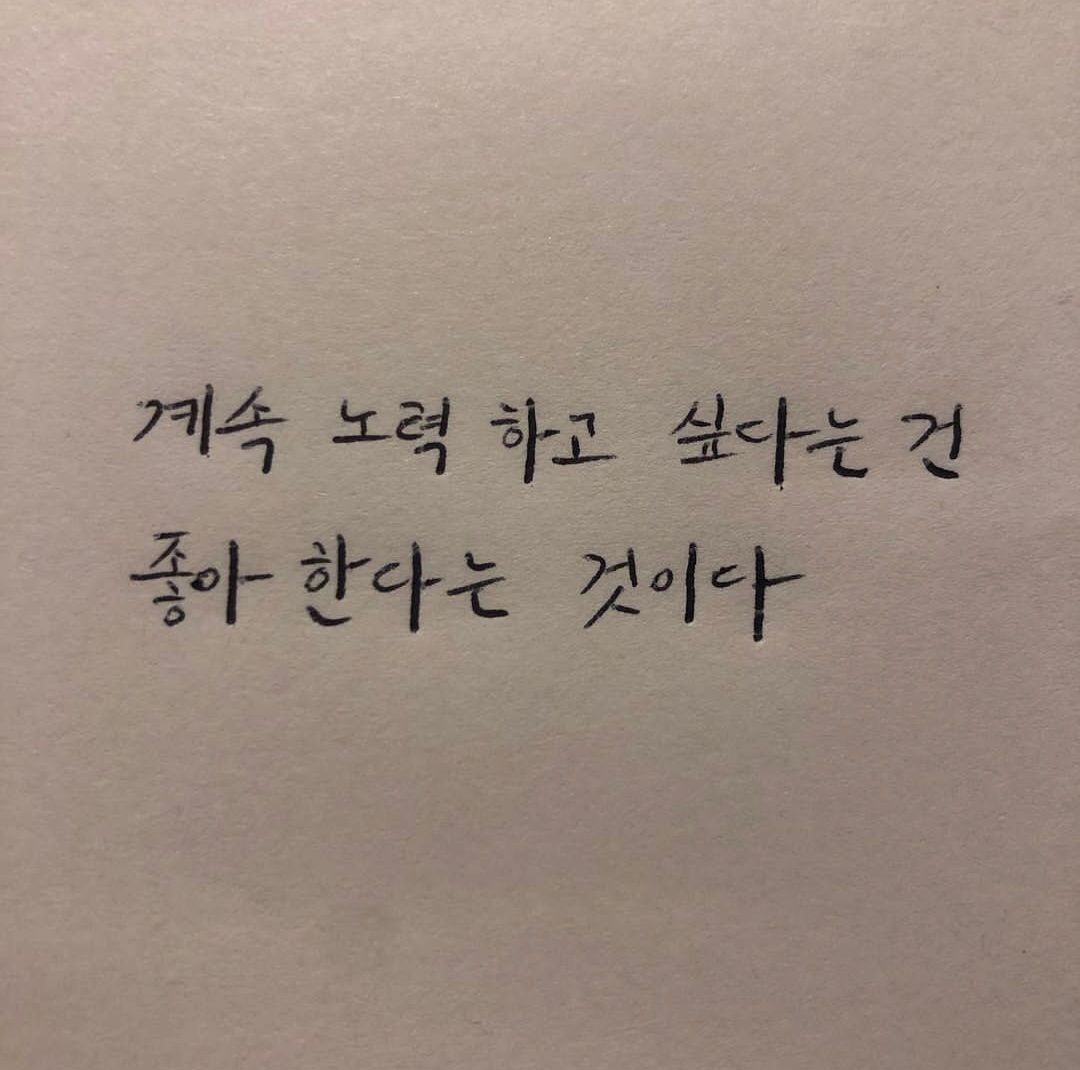 계속 노력 하고 싶다는 건
좋아 한다는 것이다